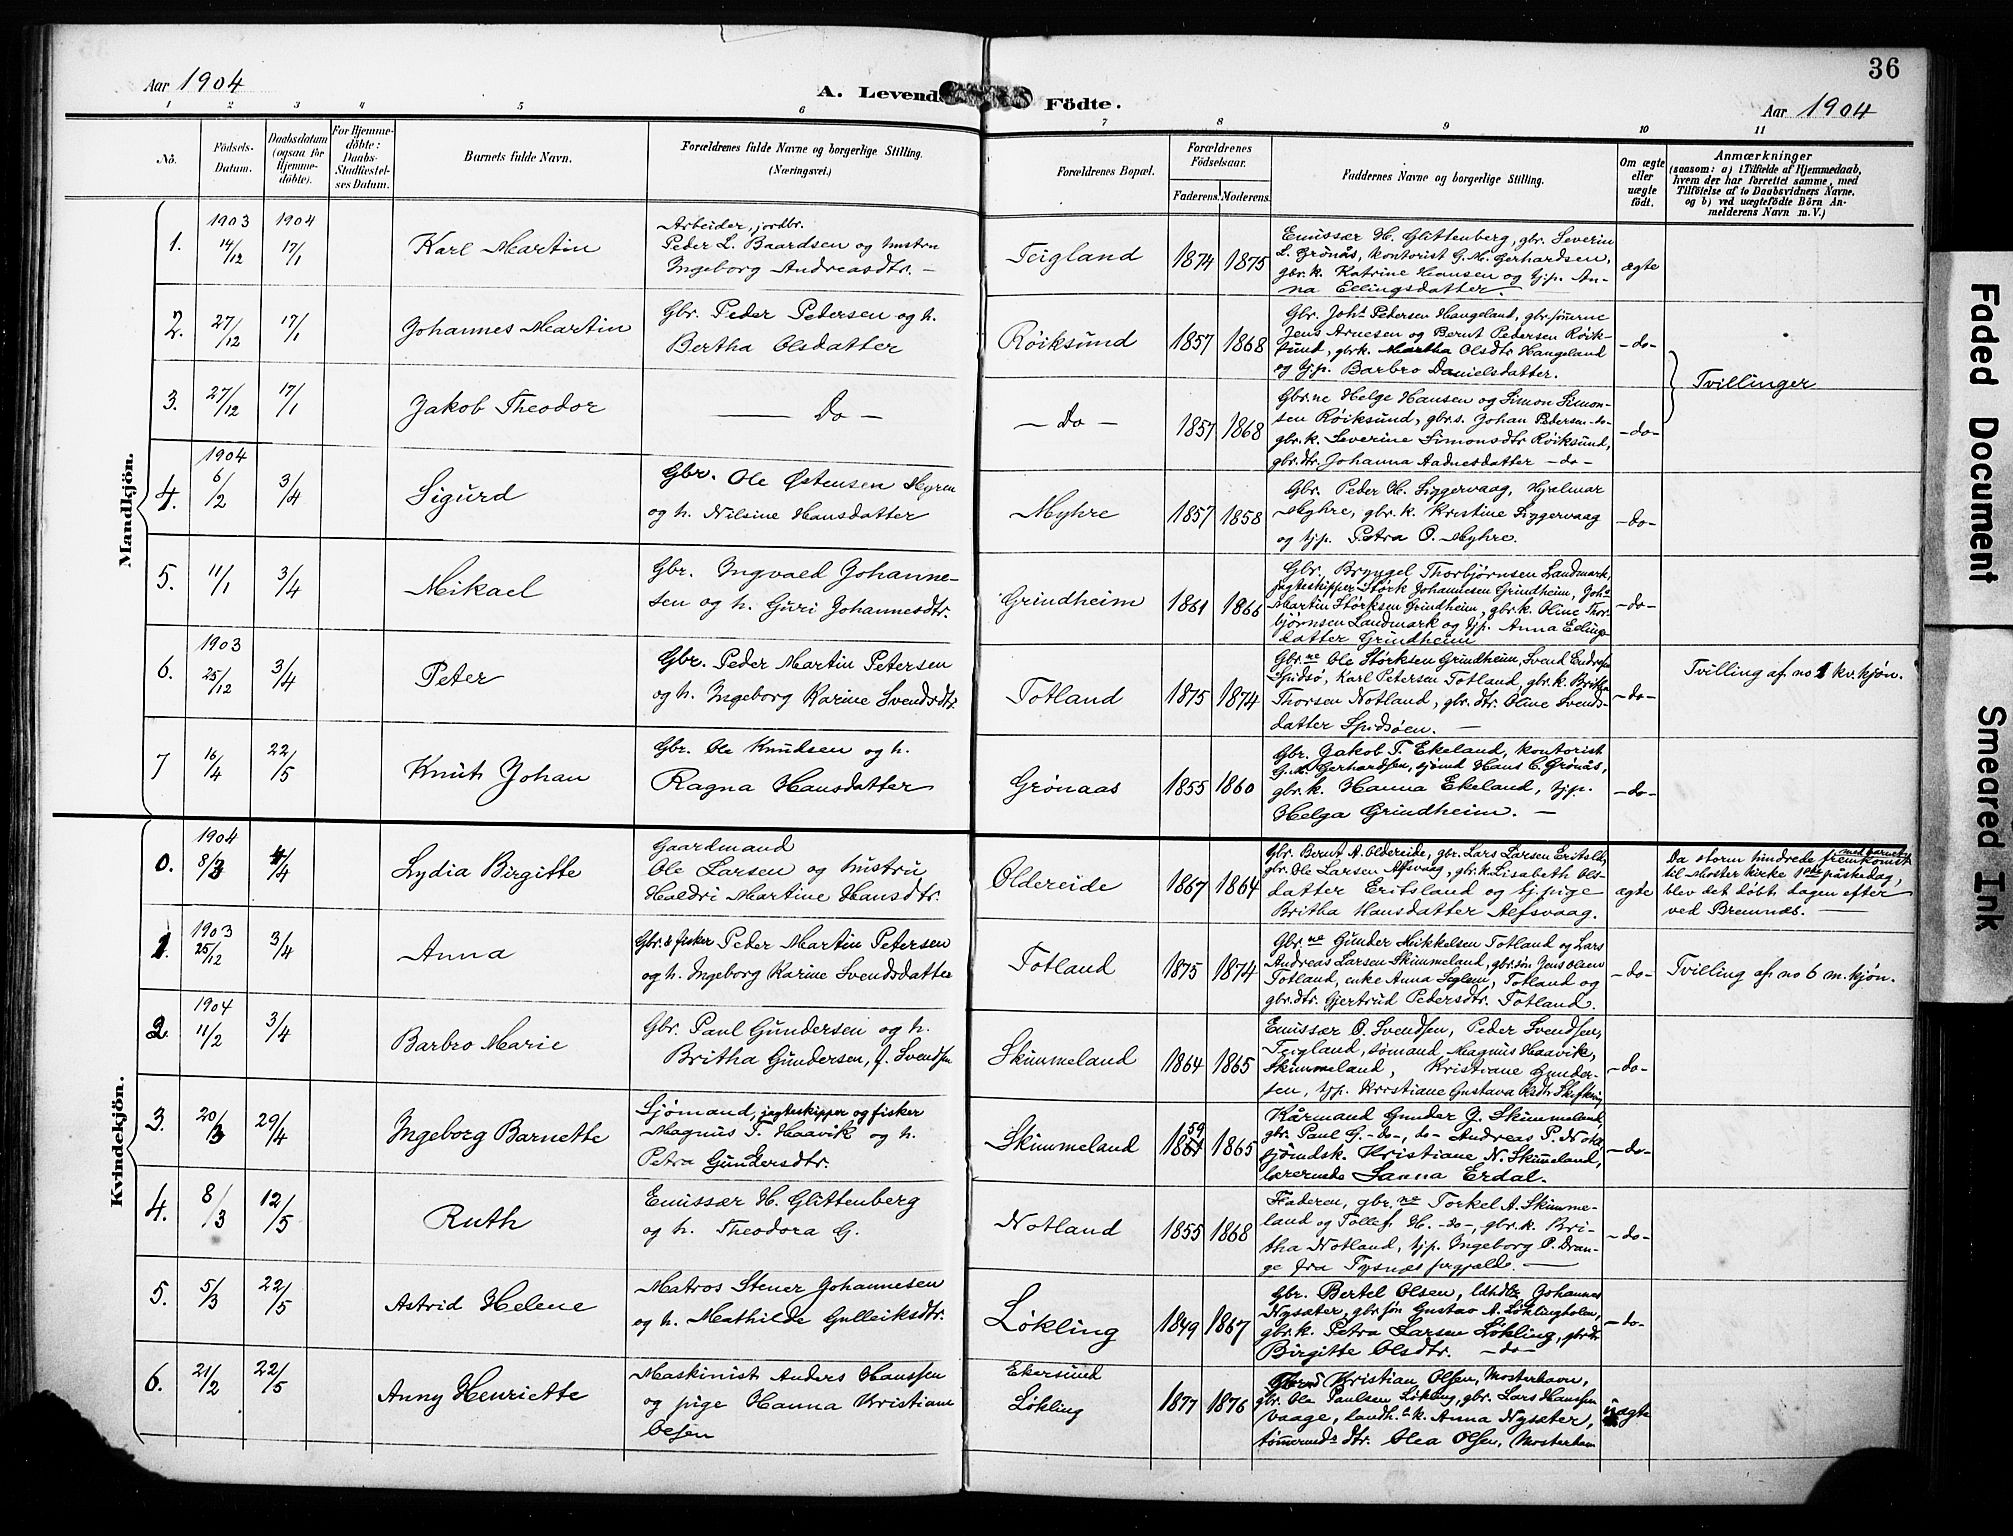 36
Aar 1904
A. Levend Födte.
Aar 1904
1 2 3 4 5 6 7 8 9 10 11
Nö.
Födsels-Datum.
Daabsdatum (ogsaa for Hjemme-döbte).
For Hjemme-döbte: Daabs-Stadfæstel-ses Datum.
Barnets fulde Navn.
Forældrenes fulde Navne og borgerlige Stilling.
(Næringsvei.)
Forældrenes Bopæl.
Forældrenes Födselsaar.
Faderens. Moderens.
Faddernes Navne og borgerlige Stilling.
Om ægte eller uægte födt.
Anmærkninger
(saasom: a) i Tilfælde af Hjemmedaab,
hvem der har forrettet samme, med
Tilföielse af to Daabsvidners Navne,
og b) ved uægtefödte Börn An-
melderens Navn m. V.)
Mandkjön.
1. 1903 14/12 1904 17/1 Karl Martin
Arbeider, jordbr.
Peder L. Baardsen og hustru
Ingeborg Andreasdtr. —
Teigland 1874 1875
Emissær H. Glittenberg, gbr. Severin
L. Grönås, kontorist G. M. Gerhardsen,
gbr.k. Katrine Hansen og tj.p. An-
na Ellingsdatter.
ægte
2. 27/12 17/1 Johannes Martin
Gbr. Peder Petersen og h.
Bertha Olsdatter
Röiksund 1857 1868
Gbr. Johs Pedersen Hangeland, gbr.sönerne
Jens Arnesen og Bernt Pedersen Röik-
sund, gbrk. Martha Olsdtr. Hangeland
og tj.p. Barbro Danielsdatter.
- do -
Tvillinger
3. 27/12 17/1 Jakob Theodor
— Do —
— Do — 1857 1868
Gbr.ne Helge Hansen og Simon Simon-
sen Röiksund, gbr.s. Johan Pedersen -do-
gbr.k. Severine Simonsdtr Röiksund,
gbr.dtr. Johanna Aadnesdatter - do -
- do -
4. 1904 6/2 3/4 Sigurd
Gbr. Ole Östensen Myren
og h. Nilsine Hansdatter
Myhre 1857 1858
Gbr. Peder H. Siggervaag, Hjalmar
Myhre, gbr.k. Kristine Siggervaag
og tj.p. Petra O. Myhre.
- do -
5. 11/1 3/4 Mikael
Gbr. Ingvald Johanne-
sen og h. Guri Johannesdtr.
Grindheim 1861 1866
Gbr. Brynjel Thorbjörnsen Landmark,
jagteskipper Störk Johannesen Grindheim, Johs
Martin Störksen Grindheim, gbr.k. Oline Thor-
björnsen Landmark og tj.p. Anna Ellings-
datter Grindheim
- do -
6. 1903 25/12 3/4 Peter
Gbr. Peder Martin Petersen
og h. Ingeborg Karine Svendsdtr.
Totland 1875 1874
Gbr.ne Ole Störksen Grindheim, Svend Endresen
Spidsö, Karl Petersen Totland, gbr.k. Britha
Thorsen Notland, gbr.dtr. Oline Svends-
datter Spidsöen. —
- do -
Tvilling af no 1 kv. kjön.
7 16/4 22/5 Knut Johan
Gbr. Ole Knudsen og h.
Ragna Hansdatter
Grönaas 1855 1860
Gbr. Jakob T. Ekeland, kontorist
G. M. Gerhardsen, sjömd Hans C. Grönås,
gbr.k. Hanna Ekeland, tj.p.
Helga Grindheim. —
- do -
Kvindekjön.
0. 1904 8/3 4/4 Lydia Birgitte
Gaardmand
Ole Larsen og hustru
Haldri Martine Hansdtr.
Oldereide 1867 1864
Gbr. Bernt A. Oldereide, gbr. Lars Larsen Eritsld,
gbr. Ole Larsen Alfsvaag, gbr.k. Lisabeth Ols-
datter Eritsland og tj.pige
Britha Hansdatter Alfsvaag.
ægte
Da storm hindrede fremkomst med barnet
til Moster kirke 1ste påskedag,
blev det döbt dagen efter
ved Bremnæs. —
1. 1903 25/12 3/4 Anna
Gbr. & fisker Peder Martin Petersen
og h. Ingeborg Karine Svendsdatter
Totland 1875 1874
Gbr.ne Gunder Mikkelsen Totland og Lars
Andreas Larsen Skimmeland, gbr.sön Jens Olsen
Totland, enke Anna Siglem, Totland og
gbr.dtr. Gjertrud Pedersdtr. Totland.
- do -
Tvilling af no 6 m. kjön.
2. 1904 11/2 3/4 Barbro Marie
Gbr. Paul Gundersen og h.
Britha Gundersen, f. Svendsen
Skimmeland 1864 1865
Emissær O. Svendsen, Peder Svendsen,
Teigland, sömand Magnus Haavik,
Skimmeland, Kristiane Gunder-
sen, tj.p. Kristiane Gustava Olsdtr.
- do -
3. 20/3 29/4 Ingeborg Barnette
Sjömand, jagteskipper og fisker
Magnus T. Haavik og h.
Petra Gundersdtr.
Skimmeland 1859 1865
Kårmand Gunder G. Skimmeland,
gbr. Paul G. -do-, do- Andreas P. Notl.
sjömdsk. Kristiane N. Skimeland,
lærerinde Sanna Erdal.
- do -
4. 8/3 12/5 Ruth
Emissær H. Glittenberg
og h. Theodora G.
Notland 1855 1868
Faderen, gbr.ne Torkel A. Skimme-
land og Tollef H. -do-, gbr.k. Bri-
tha Notland, tj.p. Ingeborg P. Dran-
ge fra Tysnes prgjald. —
- do -
5. 5/3 22/5 Astrid Helene
Matros Stener Johannesen
og h. Mathilde Gulleiksdtr.
Lökling 1849 1867
Gbr. Bertel Olsen, ldhdlr Johannes
Nysæter, gbr.sön Gustav A. Löklingholm,
gbr.k. Petra Larsen Lökling, gbr.dtr.
Birgitte Olsdtr. - do -
- do -
6. 21/2 22/5 Anny Henriette
Maskinist Anders Hanssen
og pige Hanna Kristiane
Olsen
Ekersund
Lökling
1877 1876
Kristian Olsen, Mosterhavn,
gbr. Ole Paulsen Lökling, gbr. Lars Hanssen
Vaage, landh. k. Anna Nysæter,
tömermds dtr. Olea Olsen, Mosterhavn
uægte
Faded Document
Smeared Ink